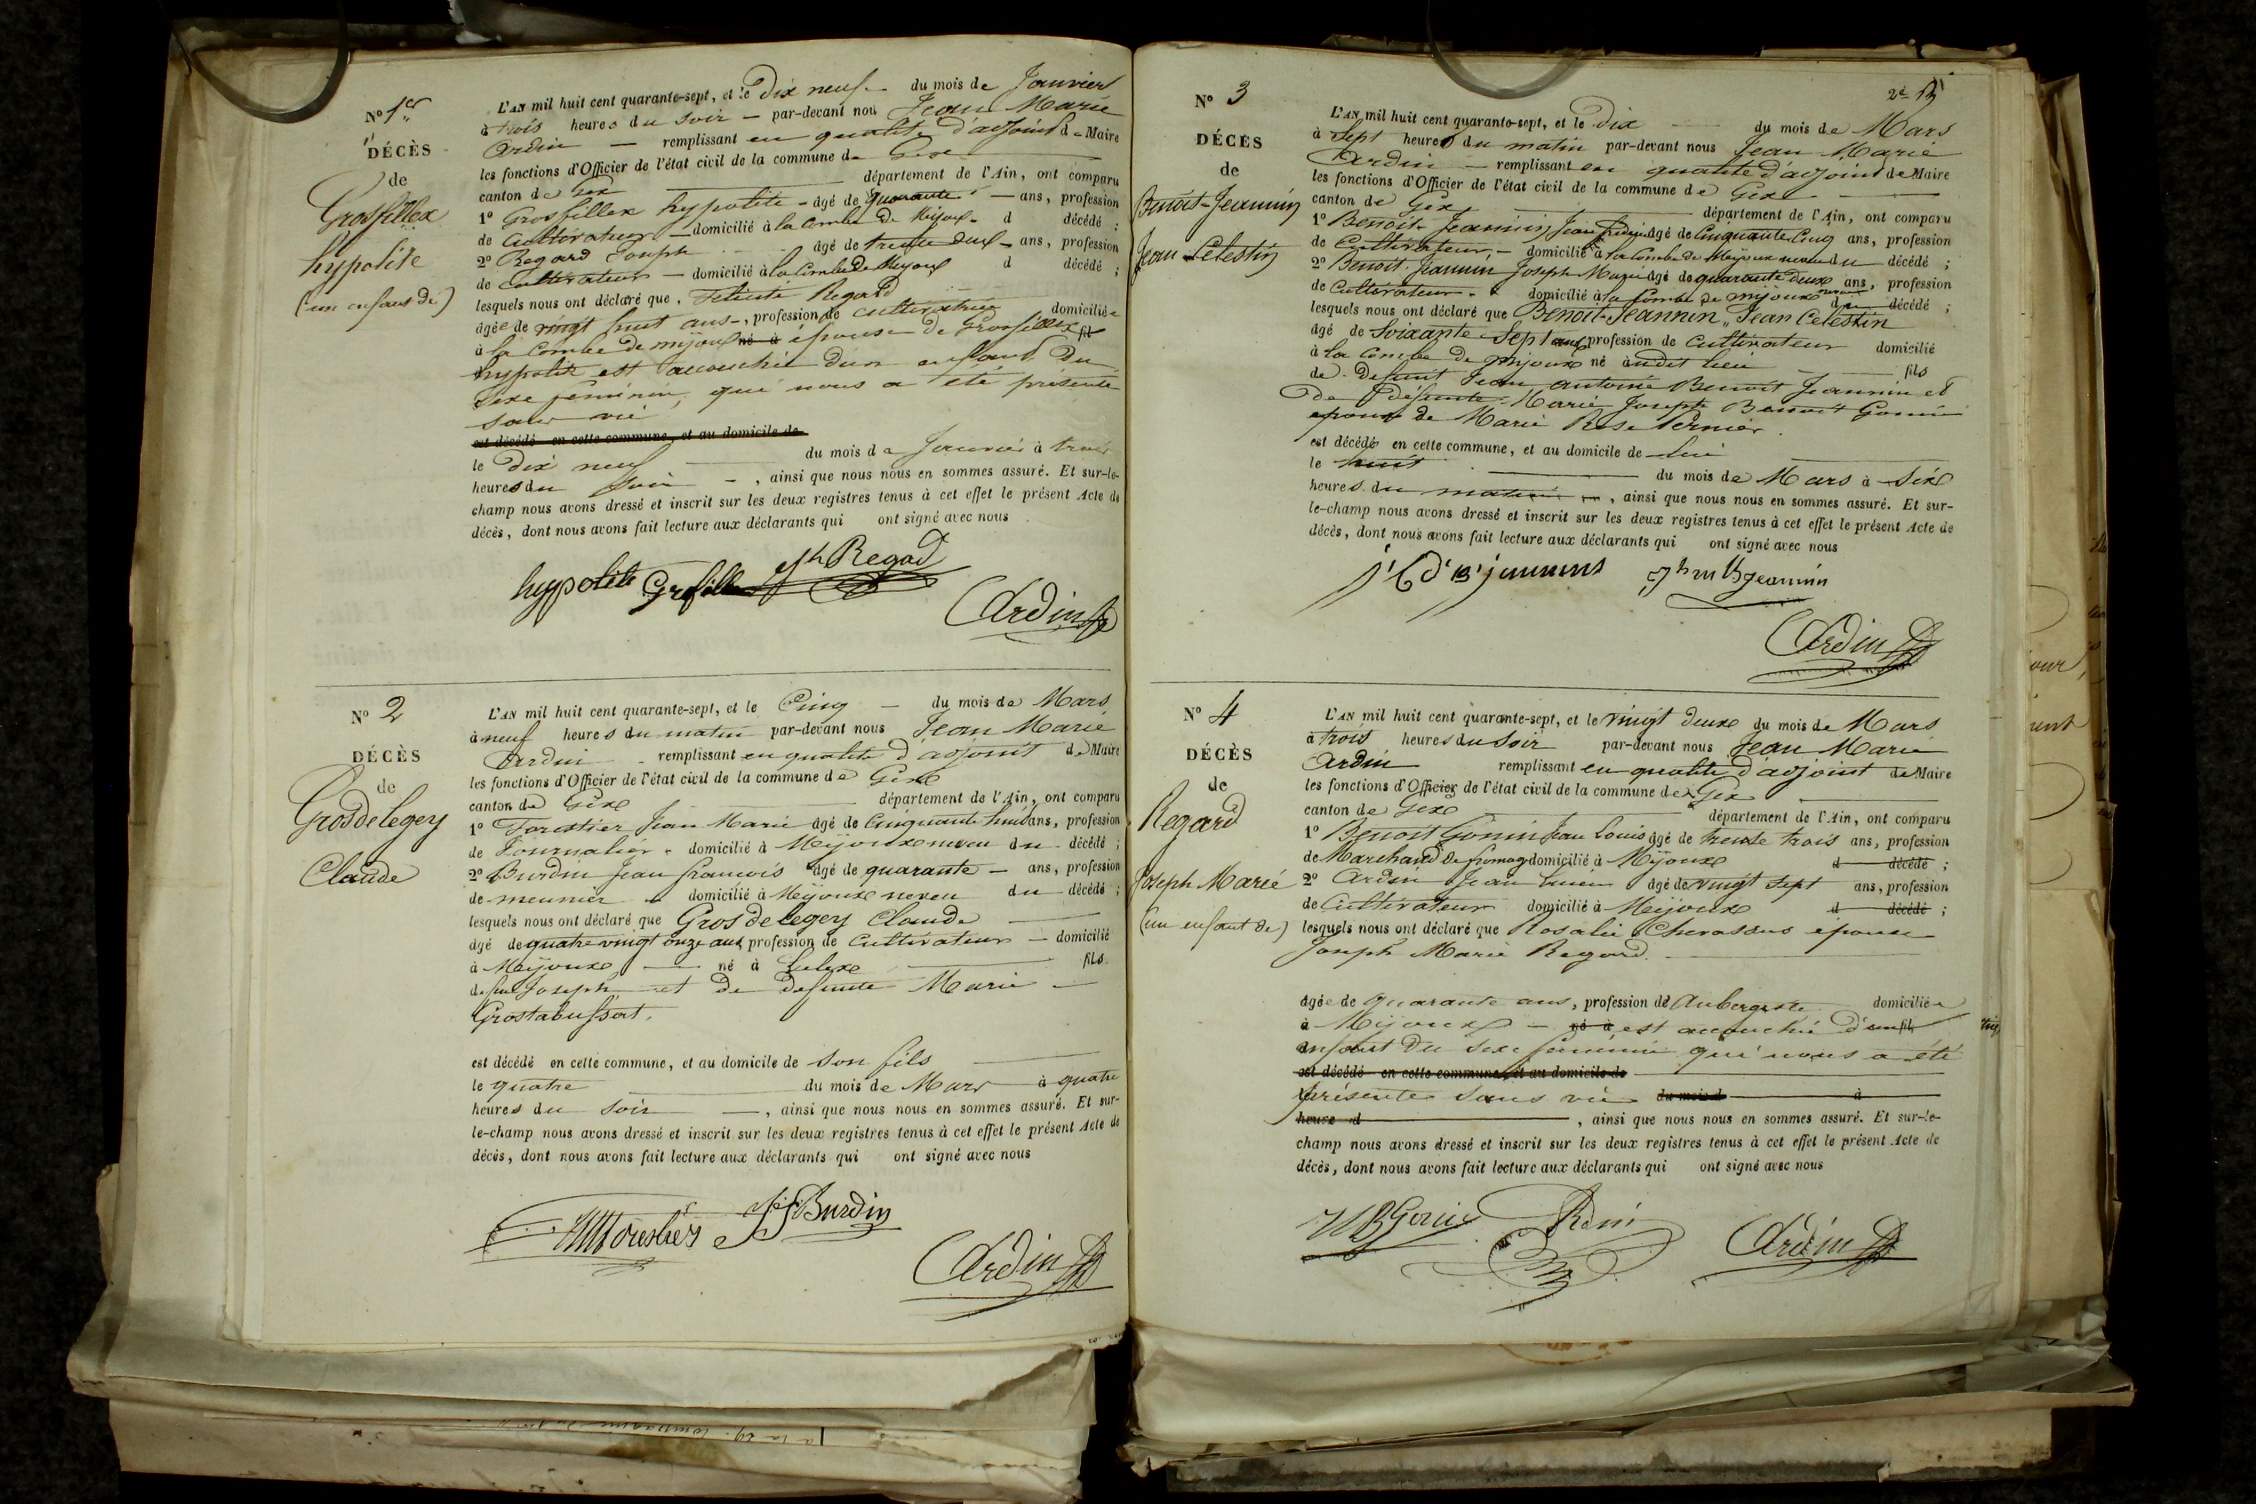 N° 1er
DÉCÈS
de
Grosfillex
hypolite
(un enfant de)
L'AN mil huit cent quarante-sept, et le Dix neuf du mois de Janvier
à trois heures du soir par-devant nou Jean Marie
Ardin remplissant en qualité d'adjoint de Maire
les fonctions d'Officier de l'état civil de la commune de Gex
canton de Gex département de l'Ain, ont comparu
1° Grosfillex hypolite âgé de quarante ans, profession
de Cultivateur domicilié à la Combe de Mijoux d décédé ;
2° Regard Joseph âgé de trente deux ans, profession
de Cultivateur domicilié à la Combe de Mijoux d décédé ;
lesquels nous ont déclaré que Félicité Regard
âgée de vingt huit ans, profession de cultivatrice domiciliée
à la Combe de mijoux né à épouse de Grosfillex fil
hypolite est accouchée d'un enfant du
sexe féminin, qui nous a été présenté
sans vie
est décédé en cette commune, et au domicile de
le Dix neuf du mois de Janvier à trois
heures du soir , ainsi que nous nous en sommes assuré. Et sur-le-
champ nous avons dressé et inscrit sur les deux registres tenus à cet effet le présent Acte de
décès, dont nous avons fait lecture aux déclarants qui ont signé avec nous
hypolite Grosfillex Jh Regad
Ardin
N° 2
DÉCÈS
de
Grosdelegey
Claude
L'AN mil huit cent quarante-sept, et le Cinq du mois de Mars
à neuf heures du matin par-devant nous Jean Marie
Ardin remplissant en qualité d'adjoint de Maire
les fonctions d'Officier de l'état civil de la commune de Gex
canton de Gex département de l'Ain, ont comparu
1° Forestier Jean Marie âgé de Cinquante huit ans, profession
de Journalier domicilié à Mijoux neveu du décédé ;
2° Burdin Jean francois âgé de quarante ans, profession
de meunier domicilié à Mijoux neveu du décédé ;
lesquels nous ont déclaré que Gros de legey Claude
âgé de quatre vingt onze ans profession de Cultivateur domicilié
à Mijoux né à Lelex fils
de feu Joseph et de defunte Marie
Grostabussiat.
est décédé en cette commune, et au domicile de son fils
le quatre du mois de Mars à quatre
heures du soir , ainsi que nous nous en sommes assuré. Et sur-
le-champ nous avons dressé et inscrit sur les deux registres tenus à cet effet le présent Acte de
décès, dont nous avons fait lecture aux déclarants qui ont signé avec nous
JM forestier JF Burdin
Ardin
2e
N° 3
DÉCÈS
de
Benoit-Jeannin
Jean Celestin
L'AN mil huit cent quarante-sept, et le Dix du mois de Mars
à Sept heures du matin par-devant nous Jean Marie
Ardin remplissant en qualité d'adjoint de Maire
les fonctions d'Officier de l'état civil de la commune de Gex
canton de Gex département de l'Ain, ont comparu
1° Benoit-Jeannin Jean âgé de Cinquante Cinq ans, profession
de Cultivateur domicilié à la Combe de Mijoux neveu du décédé ;
2° Benoit-Jeannin Joseph Marie âgé de quarante Deux ans, profession
de Cultivateur domicilié à la Combe de mijoux neveu du décédé ;
lesquels nous ont déclaré que Benoit-Jeannin Jean Celestin
âgé de Soixante Sept ans profession de Cultivateur domicilié
à la Combe de mijoux né audit lieu fils
de Defunt Jean Antoine Benoit Jeannin et
De Défunte Marie Joseph Benoit Gonin
epoux de Marie Rose Vernier
est décédé en cette commune, et au domicile de lui
le huit du mois de Mars à Six
heures du matin , ainsi que nous nous en sommes assuré. Et sur-
le-champ nous avons dressé et inscrit sur les deux registres tenus à cet effet le présent Acte de
décès, dont nous avons fait lecture aux déclarants qui ont signé avec nous
Jh m B Jeannin
Ardin
N° 4
DÉCÈS
de
Regard
Joseph Marie
(un enfant de)
L'AN mil huit cent quarante-sept, et le vingt deux du mois de Mars
à trois heures du Soir par-devant nous Jean Marie
Ardin remplissant en qualité d'adjoint de Maire
les fonctions d'Officier de l'état civil de la commune de Gex
canton de Gex département de l'Ain, ont comparu
1° Benoit Gonin Jean Louis âgé de trente trois ans, profession
de Marchand de fromage domicilié à Mijoux d décédé ;
2° Ardin Jean âgé de vingt sept ans, profession
de Cultivateur domicilié à Mijoux d décédé ;
lesquels nous ont déclaré que Rosalie Chevassus épouse
Joseph Marie Regard
âgée de quarante ans, profession de Aubergiste domiciliée
à Mijoux né à est accouchée d'un fils
enfant Du sexe féminin qui nous a été
est décédé en cette commune, et au domicile de
présenté sans vie du mois d à
heure d , ainsi que nous nous en sommes assuré. Et sur-le-
champ nous avons dressé et inscrit sur les deux registres tenus à cet effet le présent Acte de
décès, dont nous avons fait lecture aux déclarants qui ont signé avec nous
Ardin